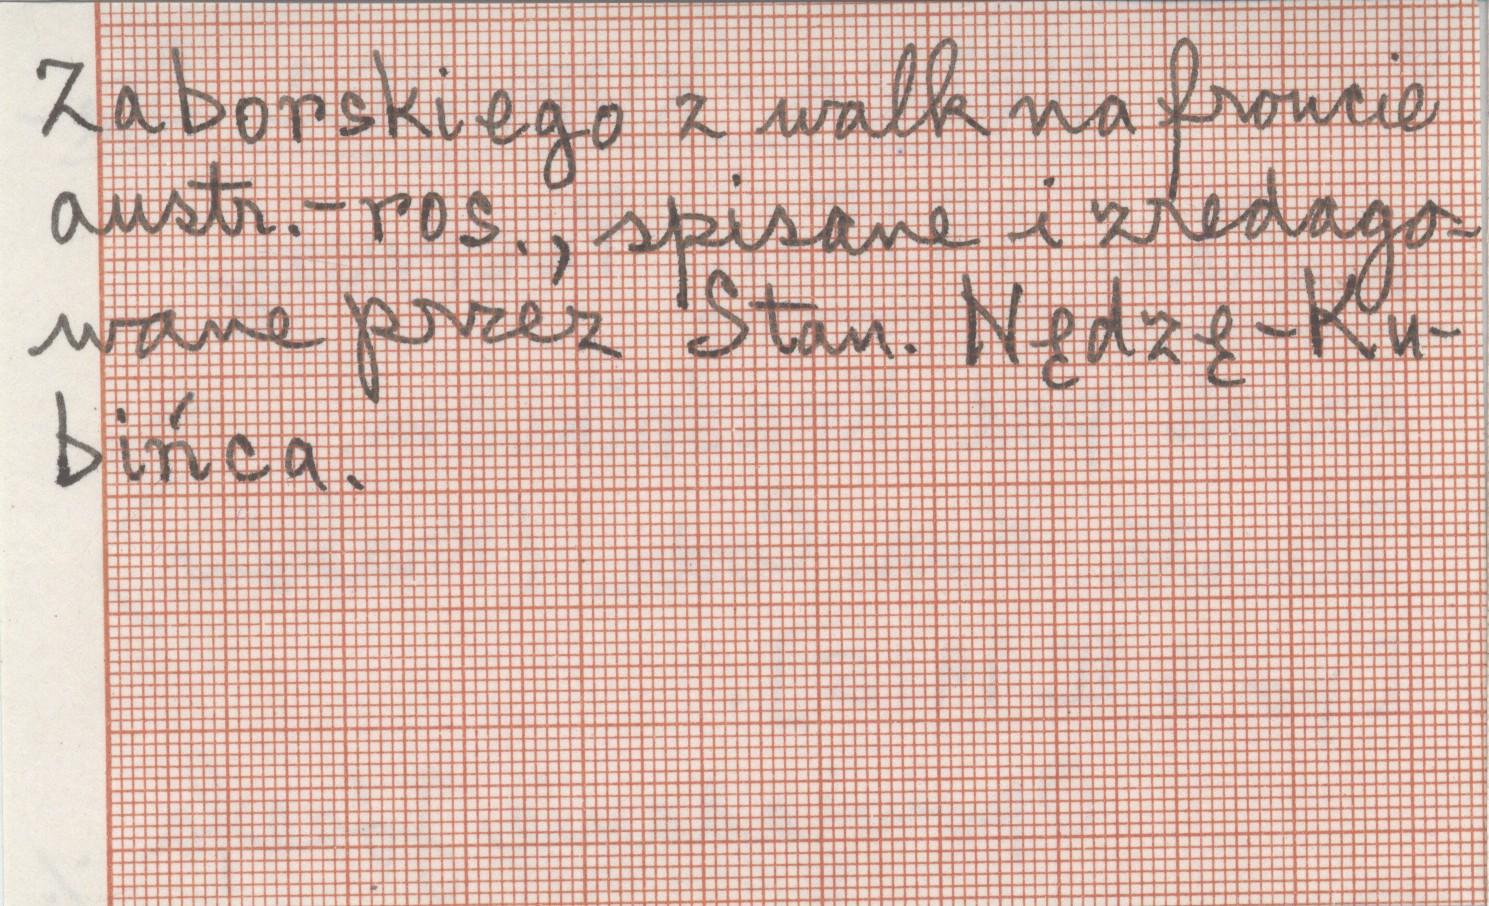 Zaborskiego z walk na froncie
austr.-ros., spisane i zredago-
wane przez Stan. Nędzę-Ku-
bińca.